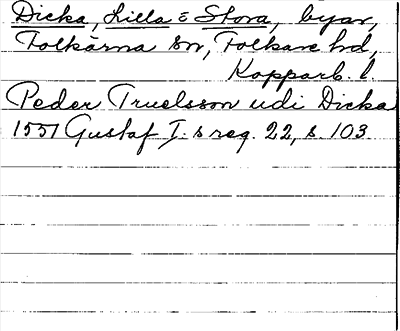 Dicka, Lilla & Stora, byar,
Folkärna sn, Folkare hd,
Kopparb. l.
Peder Truelsson udi Dicka
1551 Gustaf I:s reg. 22, s. 103.